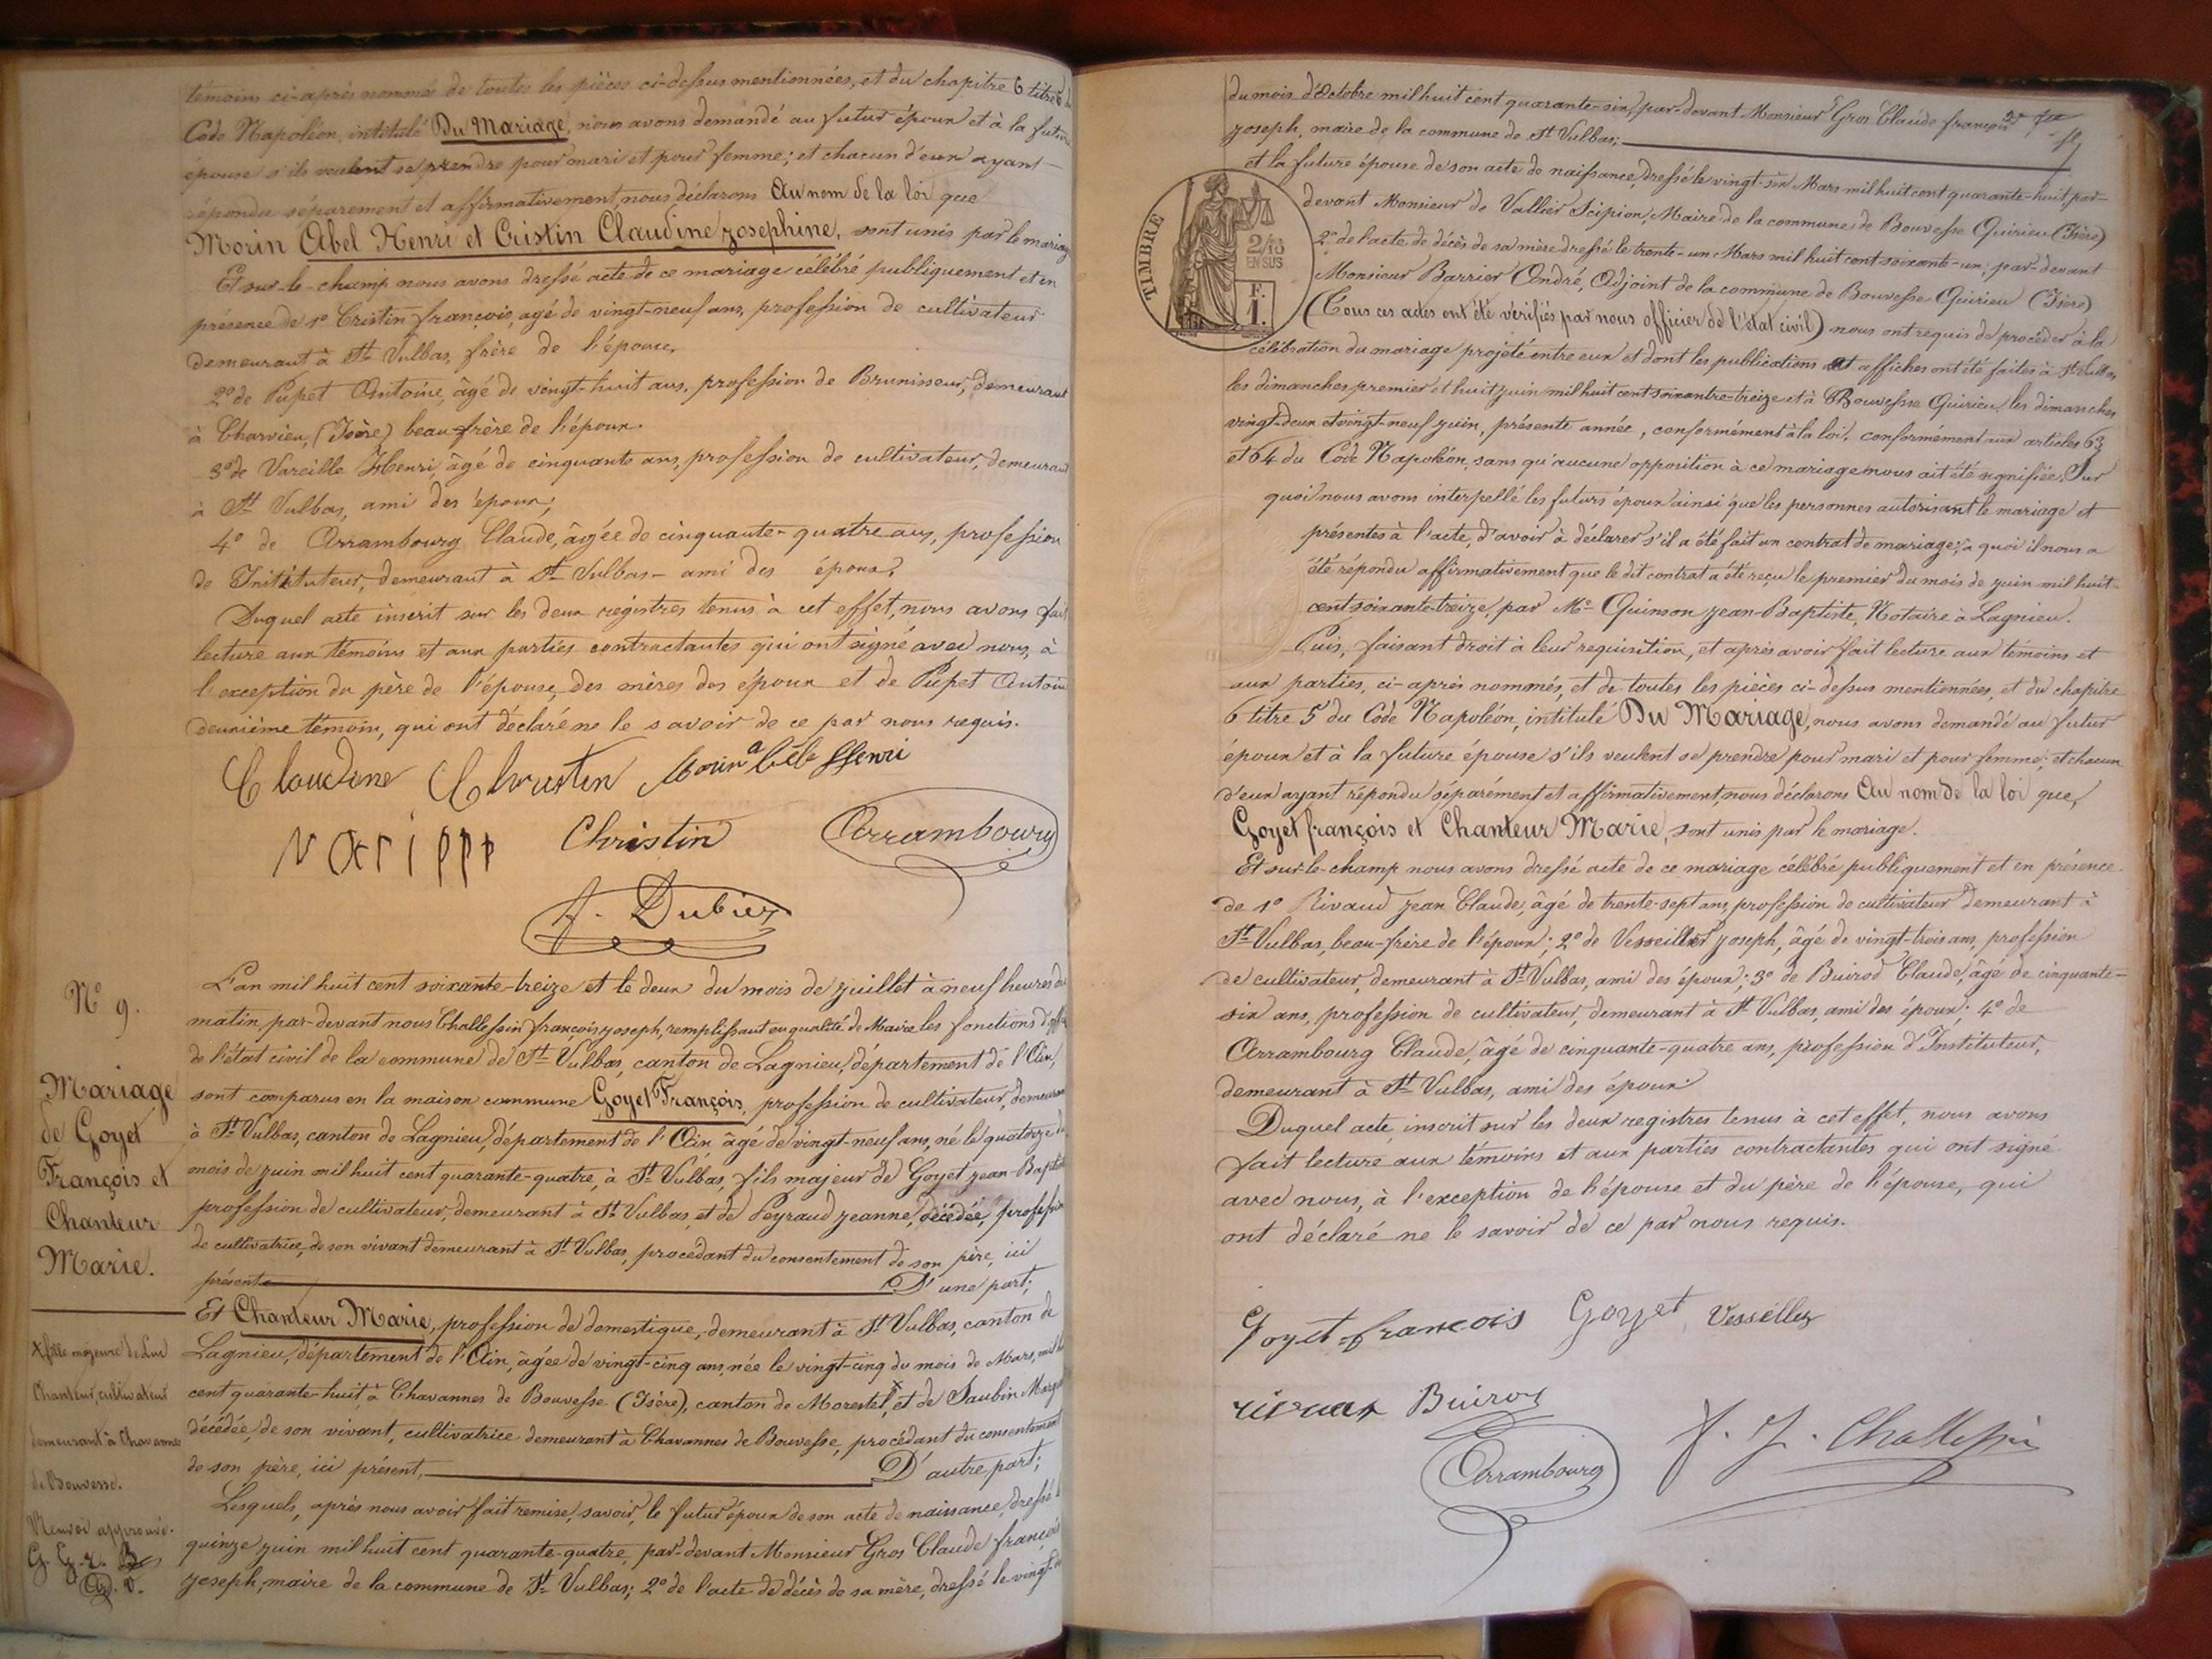 témoins ci-après nommés de toutes les pièces ci-dessus mentionnées, et du chapitre 6 titre 5 du
Code Napoléon, intitulé Du Mariage, nous avons demandé au futur époux et à la future
épouse s'ils veulent se prendre pour mari et pour femme; et chacun d'eux ayant
répondu séparement et affirmativement, nous déclarons Au nom de la loi que
Morin Abel Henri et Cristin Claudine Josephine, sont unis par le mariage
Et sur-le-champ nous avons dressé acte de ce mariage célébré publiquement et en
présence de 1º Cristin françois, agé de vingt-neuf ans, profession de cultivateur
demeurant à St Vulbas, frère de l'épouse,
2º de Pupet Antoine, âgé de vingt-huit ans, profession de Brunisseur, demeurant
à Charvieu, (Isère) beau-frère de l'époux.
3º de Vareille Henri, âgé de cinquante ans, profession de cultivateur, demeurant
à St Vulbas, ami des époux;
4º de Arrambourg Claude, âgée de cinquante-quatre ans, profession
de Instituteur, demeurant à St Vulbas - ami des époux;
Duquel acte inscrit sur les deux registres tenus à cet effet, nous avons fait
lecture aux témoins et aux parties contractantes qui ont signé avec nous, à
l'exception du père de l'épouse, des mères des époux et de Pupet Antoine
deuxième témoin, qui ont déclaré ne le savoir de ce par nous requis.
Claudine Christin Morin abèle Henri
Christin Arrambourg
Dubiez
Nº 9.
Mariage
de Goyet
François et
Chanteur
Marie.
L'an mil huit cent soixante-treize et le deux du mois de Juillet à neuf heures du
matin, par-devant nous Challessin françois joseph, remplissant en qualité de Maire les fonctions d'officier
de l'état civil de la commune de St Vulbas, canton de Lagnieu, département de l'Ain,
sont comparus en la maison commune Goyet François, profession de cultivateur, demeurant
à St Vulbas, canton de Lagnieu, département de l'Ain, âgé de vingt-neuf ans, né le quatorze du
mois de juin mil huit cent quarante-quatre, à St Vulbas, fils majeur de Goyet jean-Baptiste
profession de cultivateur, demeurant à St Vulbas, et de Peyraud jeanne, décédée, profession
de cultivatrice, de son vivant demeurant à St Vulbas, procédant du consentement de son père, ici
présent D'une part;
Et Chanteur Marie, profession de domestique, demeurant à St Vulbas, canton de
Lagnieu, département de l'Ain, âgée de vingt-cinq ans, née le vingt-cinq du mois de Mars, mil huit
cent quarante-huit, à Chavannes de Bouvesse (Isère), canton de Morestel, x et de Saubin
décédée, de son vivant, cultivatrice demeurant à Chavannes de Bouvesse, procédant du consentement
de son père, ici présent, D'autre part;
x fille majeure de
Chanteur, cultivateur
demeurant à Chavannes
de Bouvesse.
Renvoi approuvé.
Lesquels, après nous avoir fait remise, savoir, le futur époux de son acte de naissance, dressé le
quinze juin mil huit cent quarante-quatre, par-devant Monsieur Gros Claude françois
joseph, maire de la commune de St Vulbas; 2º de l'acte de décès de sa mère, dressé le
du mois d'Octobre mil huit cent quarante-six, par-devant Monsieur Gros Claude françois
joseph, maire de la commune de St Vulbas;
et la future épouse de son acte de naissance, dressé le vingt-six Mars mil huit cent quarante-huit par-
devant Monsieur de Vallier Scipion, Maire de la commune de Bouvesse Quirieu (Isère)
2º de l'acte de décès de sa mère dressé le trente-un Mars mil huit cent soixante-un; par-devant
Monsieur Barrier André, Adjoint de la commune de Bouvesse Quirieu (Isère)
(Tous ces actes ont été vérifiés par nous officier de l'état civil) nous ont requis de procéder à la
célébration du mariage projeté entre eux et dont les publications et affiches ont été faites à St Vulbas
les dimanches premier et huit juin mil huit cent soixante-treize et à Bouvesse Quirieu, les dimanches
vingt-deux et vingt-neuf juin, présente année, conformément à la loi, conformément aux articles 63
et 64 du Code Napoléon, sans qu'aucune opposition à ce mariage nous ait été signifiée. Sur
quoi nous avons interpellé les futurs époux ainsi que les personnes autorisant le mariage et
présentes à l'acte, d'avoir à déclarer s'il a été fait un contrat de mariage; à quoi il nous a
été répondu affirmativement que le dit contrat a été reçu le premier du mois de juin mil huit-
cent soixante-treize, par Me Quinson jean-Baptiste, Notaire à Lagnieu.
Puis, faisant droit à leur requisition, et après avoir fait lecture aux témoins et
aux parties, ci-après nommés, et de toutes les pièces ci-dessus mentionnées, et du chapitre
6 titre 5 du Code Napoléon, intitulé Du Mariage, nous avons demandé au futur
époux et à la future épouse s'ils veulent se prendre pour mari et pour femme, et chacun
d'eux ayant répondu séparément et affirmativement, nous déclarons Au nom de la loi que,
Goyet françois et Chanteur Marie, sont unis par le mariage.
Et sur-le-champ nous avons dressé acte de ce mariage célébré publiquement et en présence
de 1º Rivaud jean Claude, âgé de trente-sept ans, profession de cultivateur demeurant à
St Vulbas, beau-frère de l'époux; 2º de Vesseiller joseph, âgé de vingt-trois ans, profession
de cultivateur, demeurant à St Vulbas, ami des époux; 3º de Buirod Claude, âgé de cinquante-
six ans, profession de cultivateur, demeurant à St Vulbas, ami des époux; 4º de
Arrambourg Claude, âgé de cinquante-quatre ans, profession d'Instituteur,
demeurant à St Vulbas, ami des époux
Duquel acte, inscrit sur les deux registres tenus à cet effet, nous avons
fait lecture aux témoins et aux parties contractantes qui ont signé
avec nous, à l'exception de l'épouse et du père de l'épouse, qui
ont déclaré ne le savoir de ce par nous requis.
Goyet francois Goyet Vesseillez
Buirod
Arrambourg
F. J. Challessin
TIMBRE
2/10
EN SUS
F.
1.